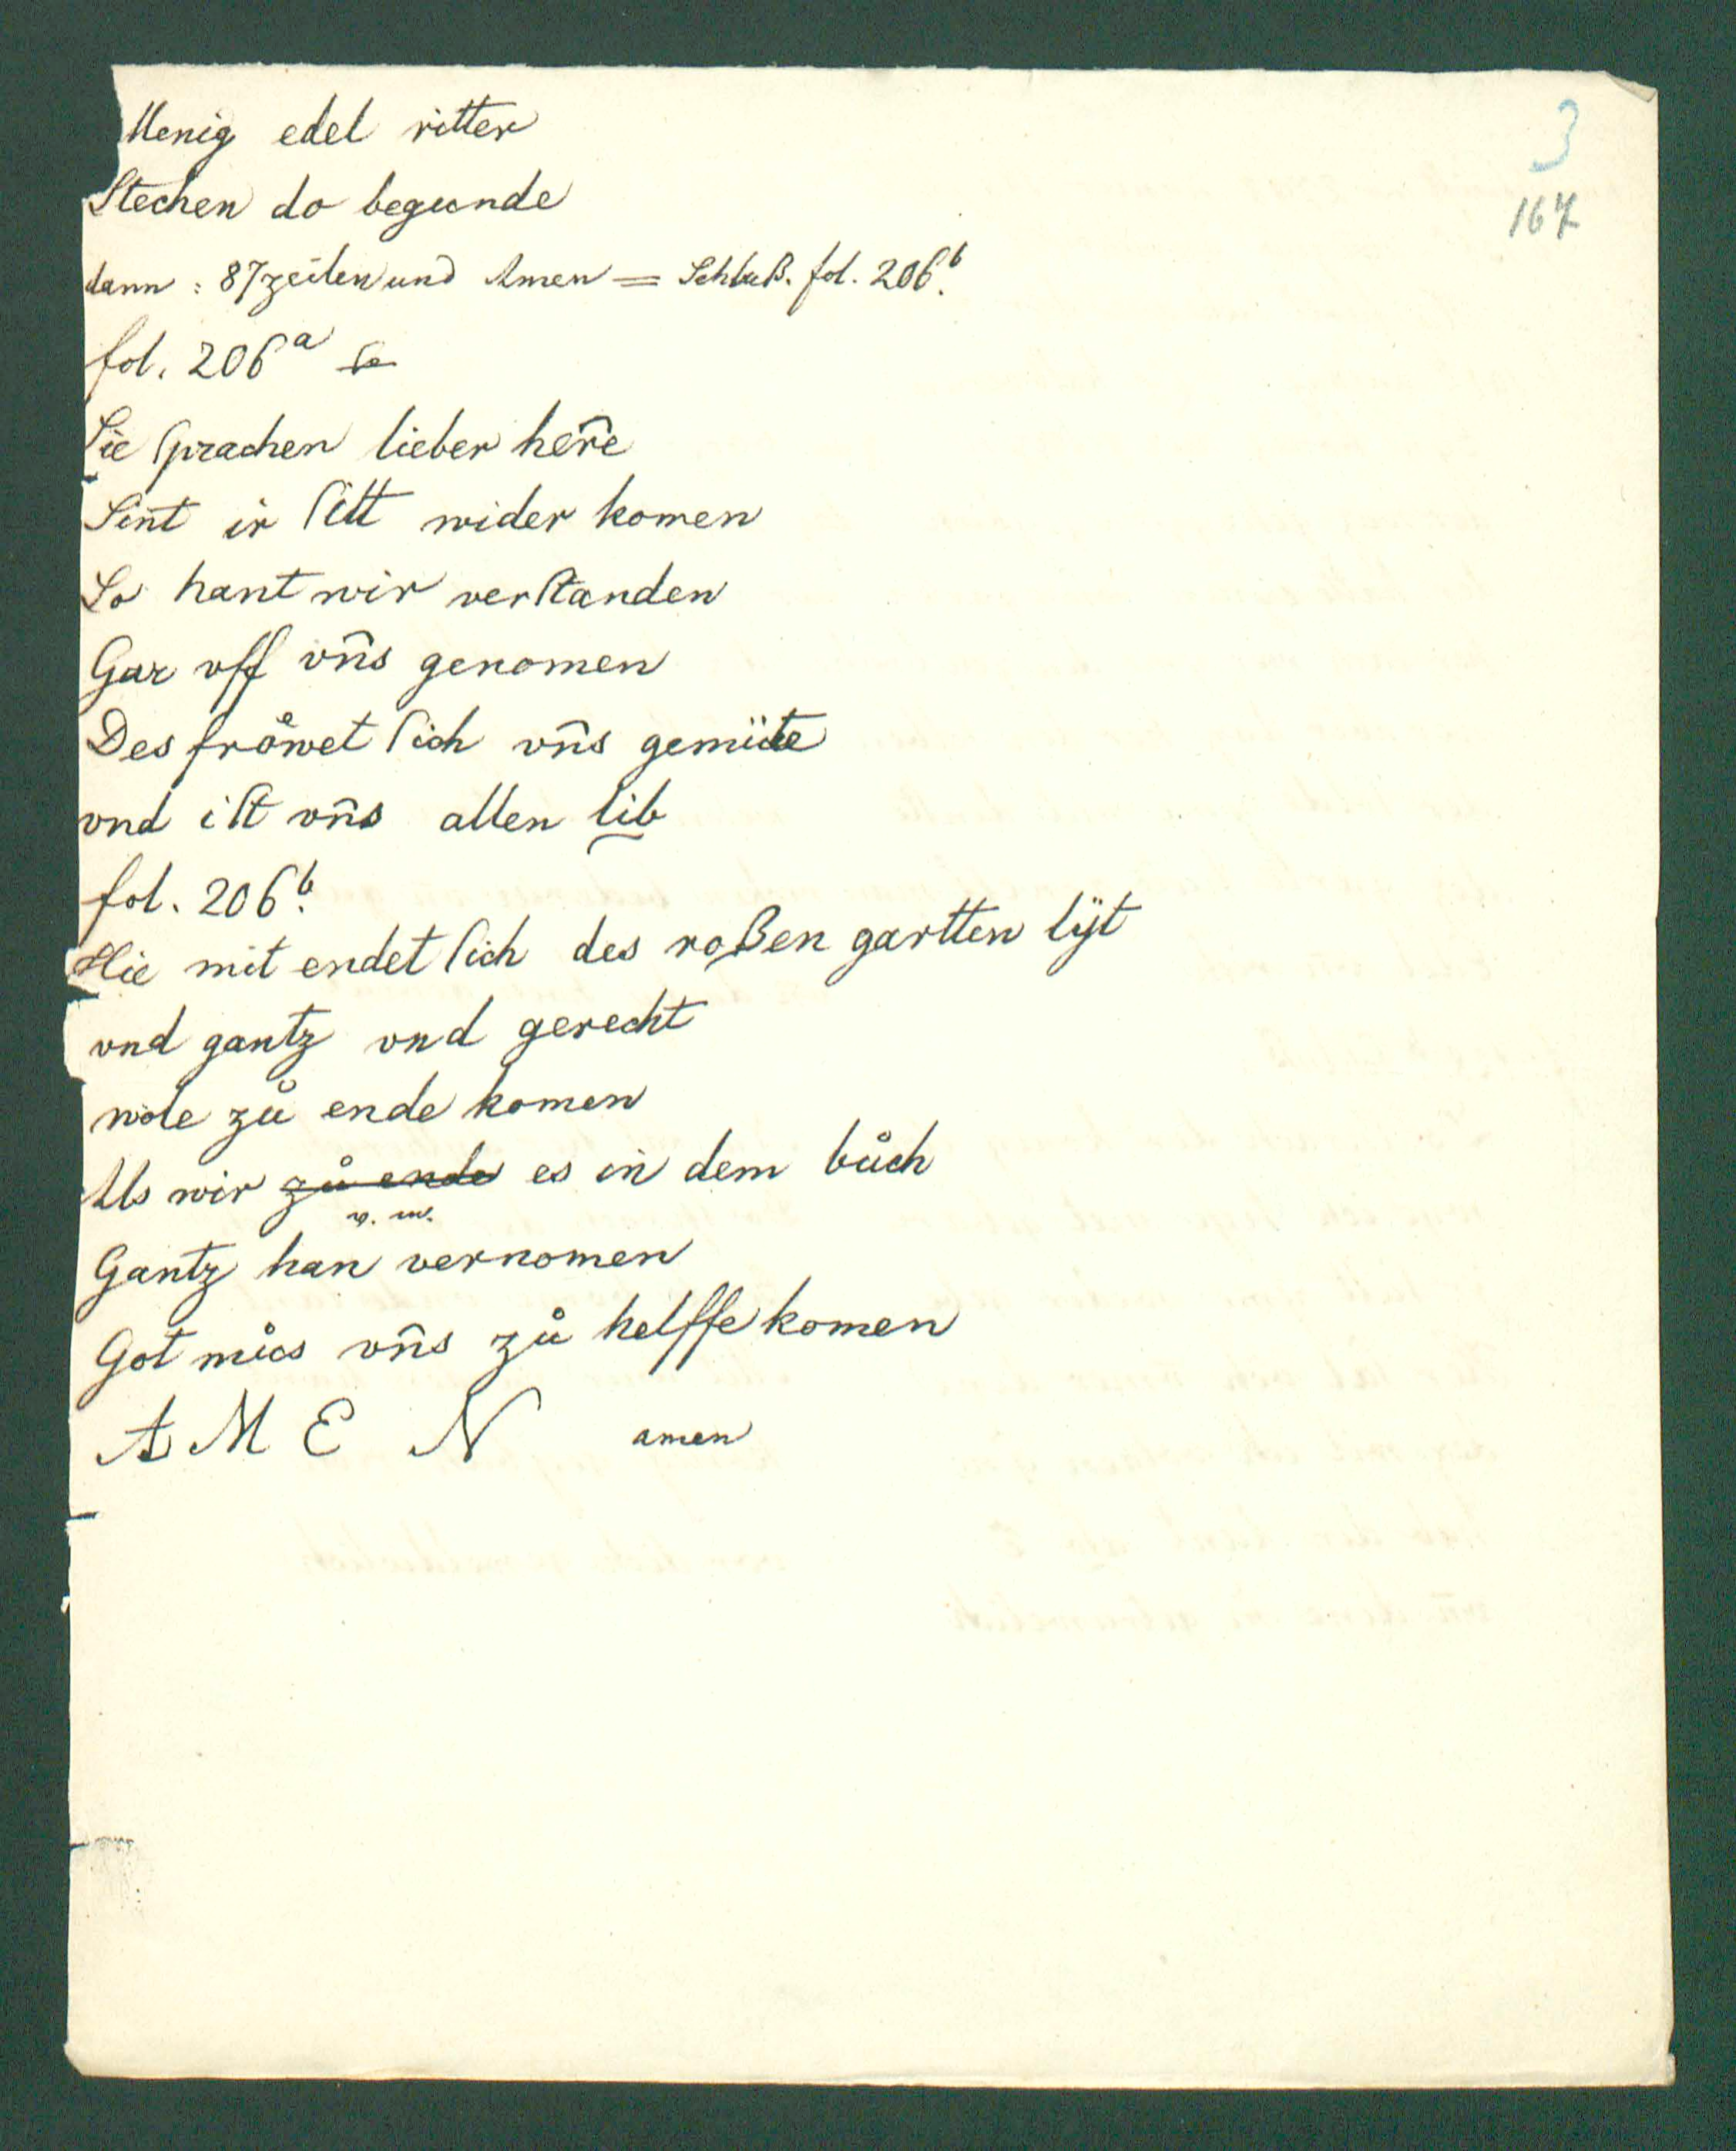 3
167
Menig edel ritter
Stechen do begunde
dann : 87 zeilen und Amen = Schluß. fol. 206ᵇ.
fol. 206ᵃ
Sie ſprachen lieber here̅
Sint ir ſitt wider komen
So hant wir verſtanden
Gar vff vn̅s genomen
Des froͤwet ſich vn̅s gemüte
vnd iſt vn̅s allen lib
fol. 206ᵇ.
Hie mit endet ſich des roßen gartten lÿt
vnd gantz vnd gerecht
wole zů ende komen
Als wir zů ende es in dem bůch
v. m.
Gantz han vernomen
Got můs vn̅s zů helffe komen
A M E N amen